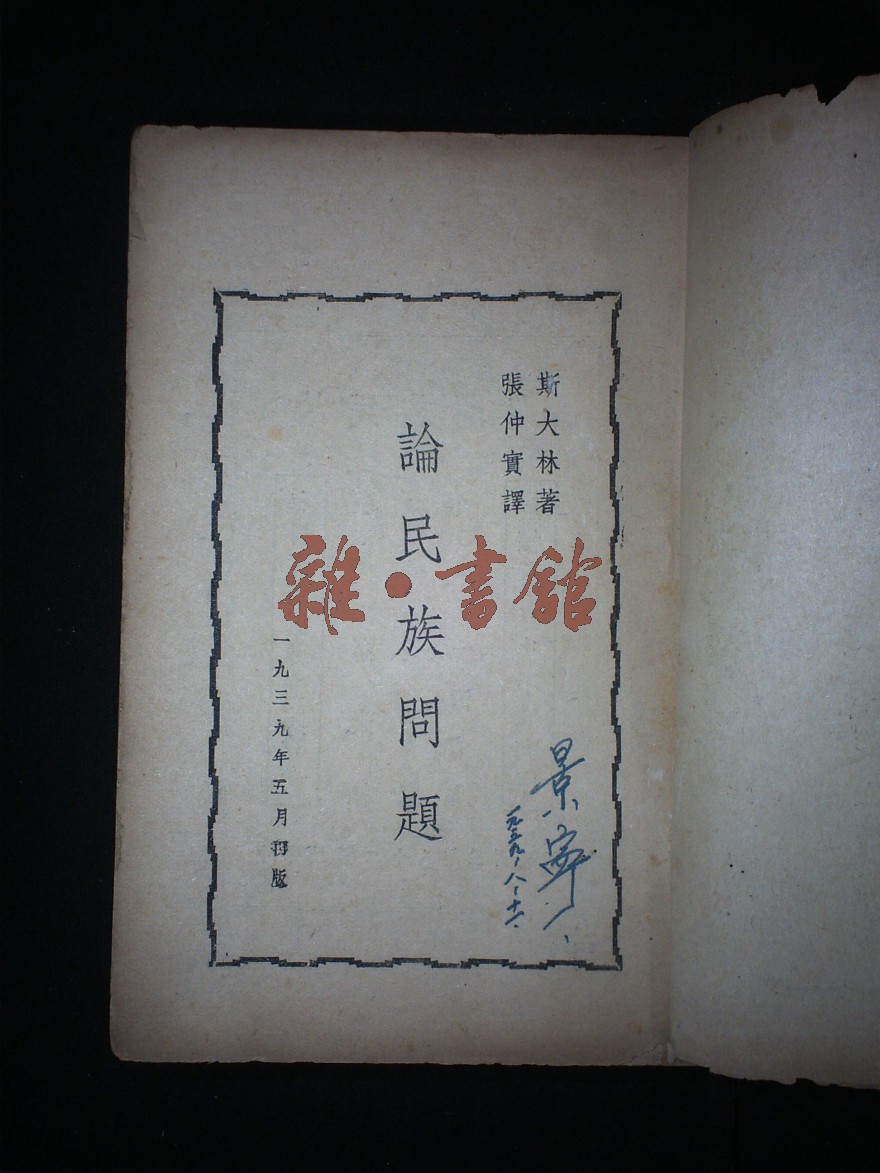 斯大林著
張仲實譯
論民族問題
一九三九年五月初版
雜·書館
景寧
一九五九、八、十一.